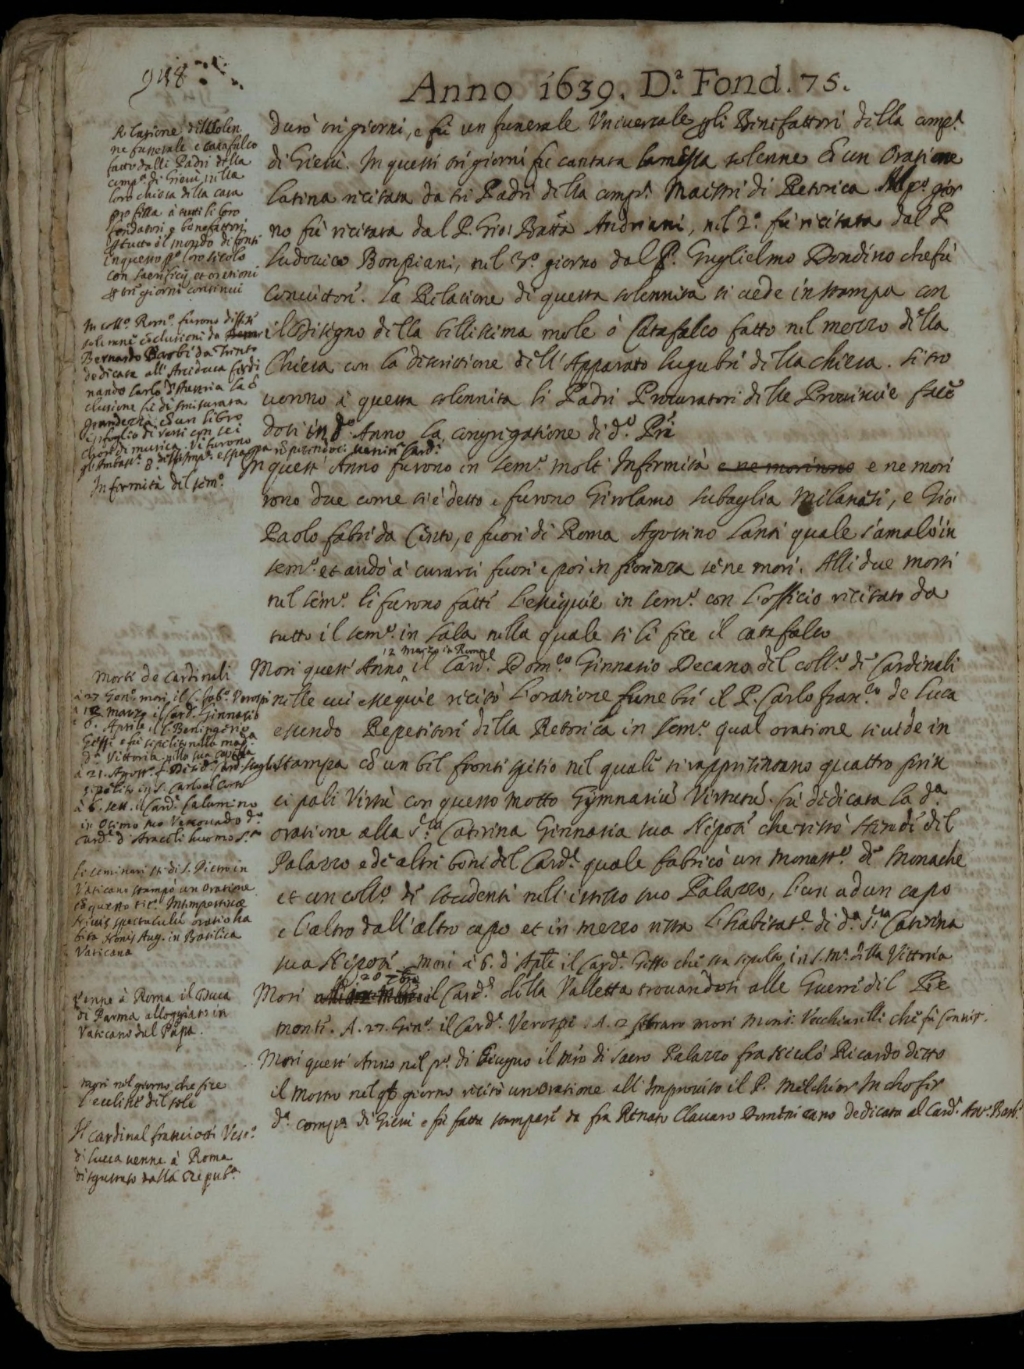 948
Anno 1639. D.ª Fond. 75.
Relatione del solen
ne funerale e catafalco
fatto dalli Padri della
comp.ª di Giesù nella
loro chiesa della casa
professa à tutti li loro
fondatori e benefattori
di tutto il mondo defonti
in questo p.º loro secolo
con sacrificij et orationi
tre giorni continui
In coll.º Rom.º furono difese
solenni conclusioni da
Bernardo Barbi da Trento
dedicate all' Arciduca Ferdi
nando Carlo d'Austria la con
clusione fù di smisurata
grandezza con un libro
in foglio di versi con sei
chori di musica. Vi furono
Infermità del sem.º
durò tre giorni, e fù un funerale Universale per gli Benefattori della comp.ª
di Giesù. In questi tre giorni fu cantata la messa solenne con Oratione
latina recitata da tre Padri della comp.ª Maestri di Retorica. Il p.º gior
no fù recitata dal P. Gio: Batta Andriani, nel 2.º fù recitata dal P.
Ludovico Bompiani, nel 3.º giorno dal P. Guglielmo Dondino che fù
Convittore. La Relatione di questa solennità si vede in stampa con
il disegno della bellissima mole ò Catafalco fatto nel mezzo della
Chiesa con la descrittione dell' Apparato lugubre della chiesa. Si tro
uorono à questa solennità li Padri Procuratori delle Provincie
in d.º Anno la congregatione di d.i
In quest' Anno furono in sem.º molte Infermità e ne morirno e ne mori
rono due come si è detto e furono Girolamo Milanese, e Gio:
Paolo fabri da Cento, e fuori di Roma Agostino quale s'amalò in
sem.º et andò à curarsi fuori e poi in Fiorenza se ne morì. Alli due morti
nel sem.º li furono fatte l'essequie in sem.º con l'officio recitato da
tutto il sem.º in sala nella quale si li fece il catafalco
12 Marzo in Roma
Morì quest' Anno il Card.l Dom.co Ginnasio Decano del coll.º de Cardinali
nelle cui essequie recitò l'oratione funebre il P. Carlo fran.co de Luca
essendo Repetitore della Retorica in sem.º qual oratione si vede in
stampa con un bel frontispitio nel quale si rappresentano quattro prin
cipali Virtù con questo motto Gymnasiũ Virtutũ. fù dedicata la d.ª
oratione alla S.ra Caterina Ginnasia sua Nipote che restò herede del
Palazzo e de altri beni del Card.l quale fabricò un monast.º de Monache
et un coll.º de studenti nell' istesso suo Palazzo, l'un ad un capo
e l'altro dall' altro capo et in mezzo resta l'habitat.e di d.ª S.ra Caterina
sua Nipote. morì à 6. d'Aple il Card.l che sta sepolto in S. M.ª della Vittoria
Morì il Card.l della Valletta trouandosi alle Guerre del Pie
monte. A. 27. Gen.º il Card.l Verospi. A. 2 febraro morì Mons.r Vecchiarelli che fù Convit.
Morì quest' Anno nel p.º di Giugno il m.ro di Sacro Palazzo fra Nicolò Ricardo detto
il mostro nel giorno recitò un'oratione all' Improuiso il P. Melchior Inchofer
d.ª comp.ª di Giesù e fù fatta stampare da fra Renato Clavaro dedicata al Card.l Ant.º Barb.
Morte de Cardinali
à 27 Gen.º morì il Card.l Verospi
à 12 Marzo il Card.l Ginnasio
6. Aprile
Gessi e fù sepolto nella mad.ª
d.ª Vittoria nella sua capella
sepolto in S. Carlo al Corso
à 6. sett. il Card.l Galamino
in Osimo suo Vescovado d.º
Card.l d'Araceli huomo S.to
Li seminaristi di S. Pietro in
Vaticano stampò un'oratione
con questo tit.º
spectaculũ oratio ha
bita Nonis Aug. in Basilica
Vaticana
Venne à Roma il Duca
di Parma alloggiato in
Vaticano dal Papa.
morì nel giorno che fece
l'eclisse del sole
Il Cardinal franciotti Vesc.º
di Lucca venne à Roma
disgustato dalla Repub.ª